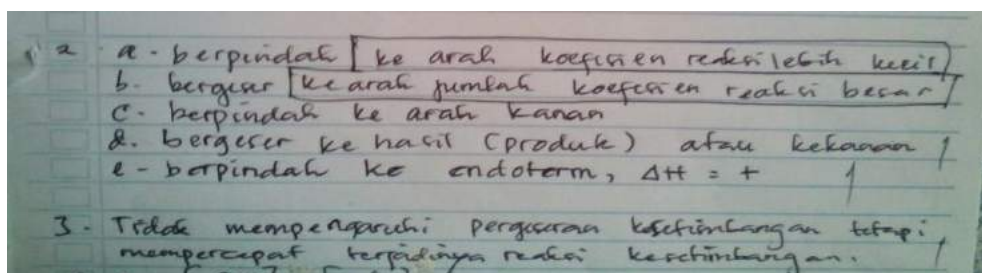 2 a - berpindah ke arah koefisien reaksi lebih kecil
b. bergeser ke arah jumlah koefesien reaksi besar
c - berpindah ke arah kanan
d. bergeser ke hasil (produk) atau kekanan
e - berpindah ke endoterm, ΔH = +
3 - Tidak mempengaruhi pergeseran kesetimbangan tetapi
mempercepat terjadinya reaksi kesetimbangan.